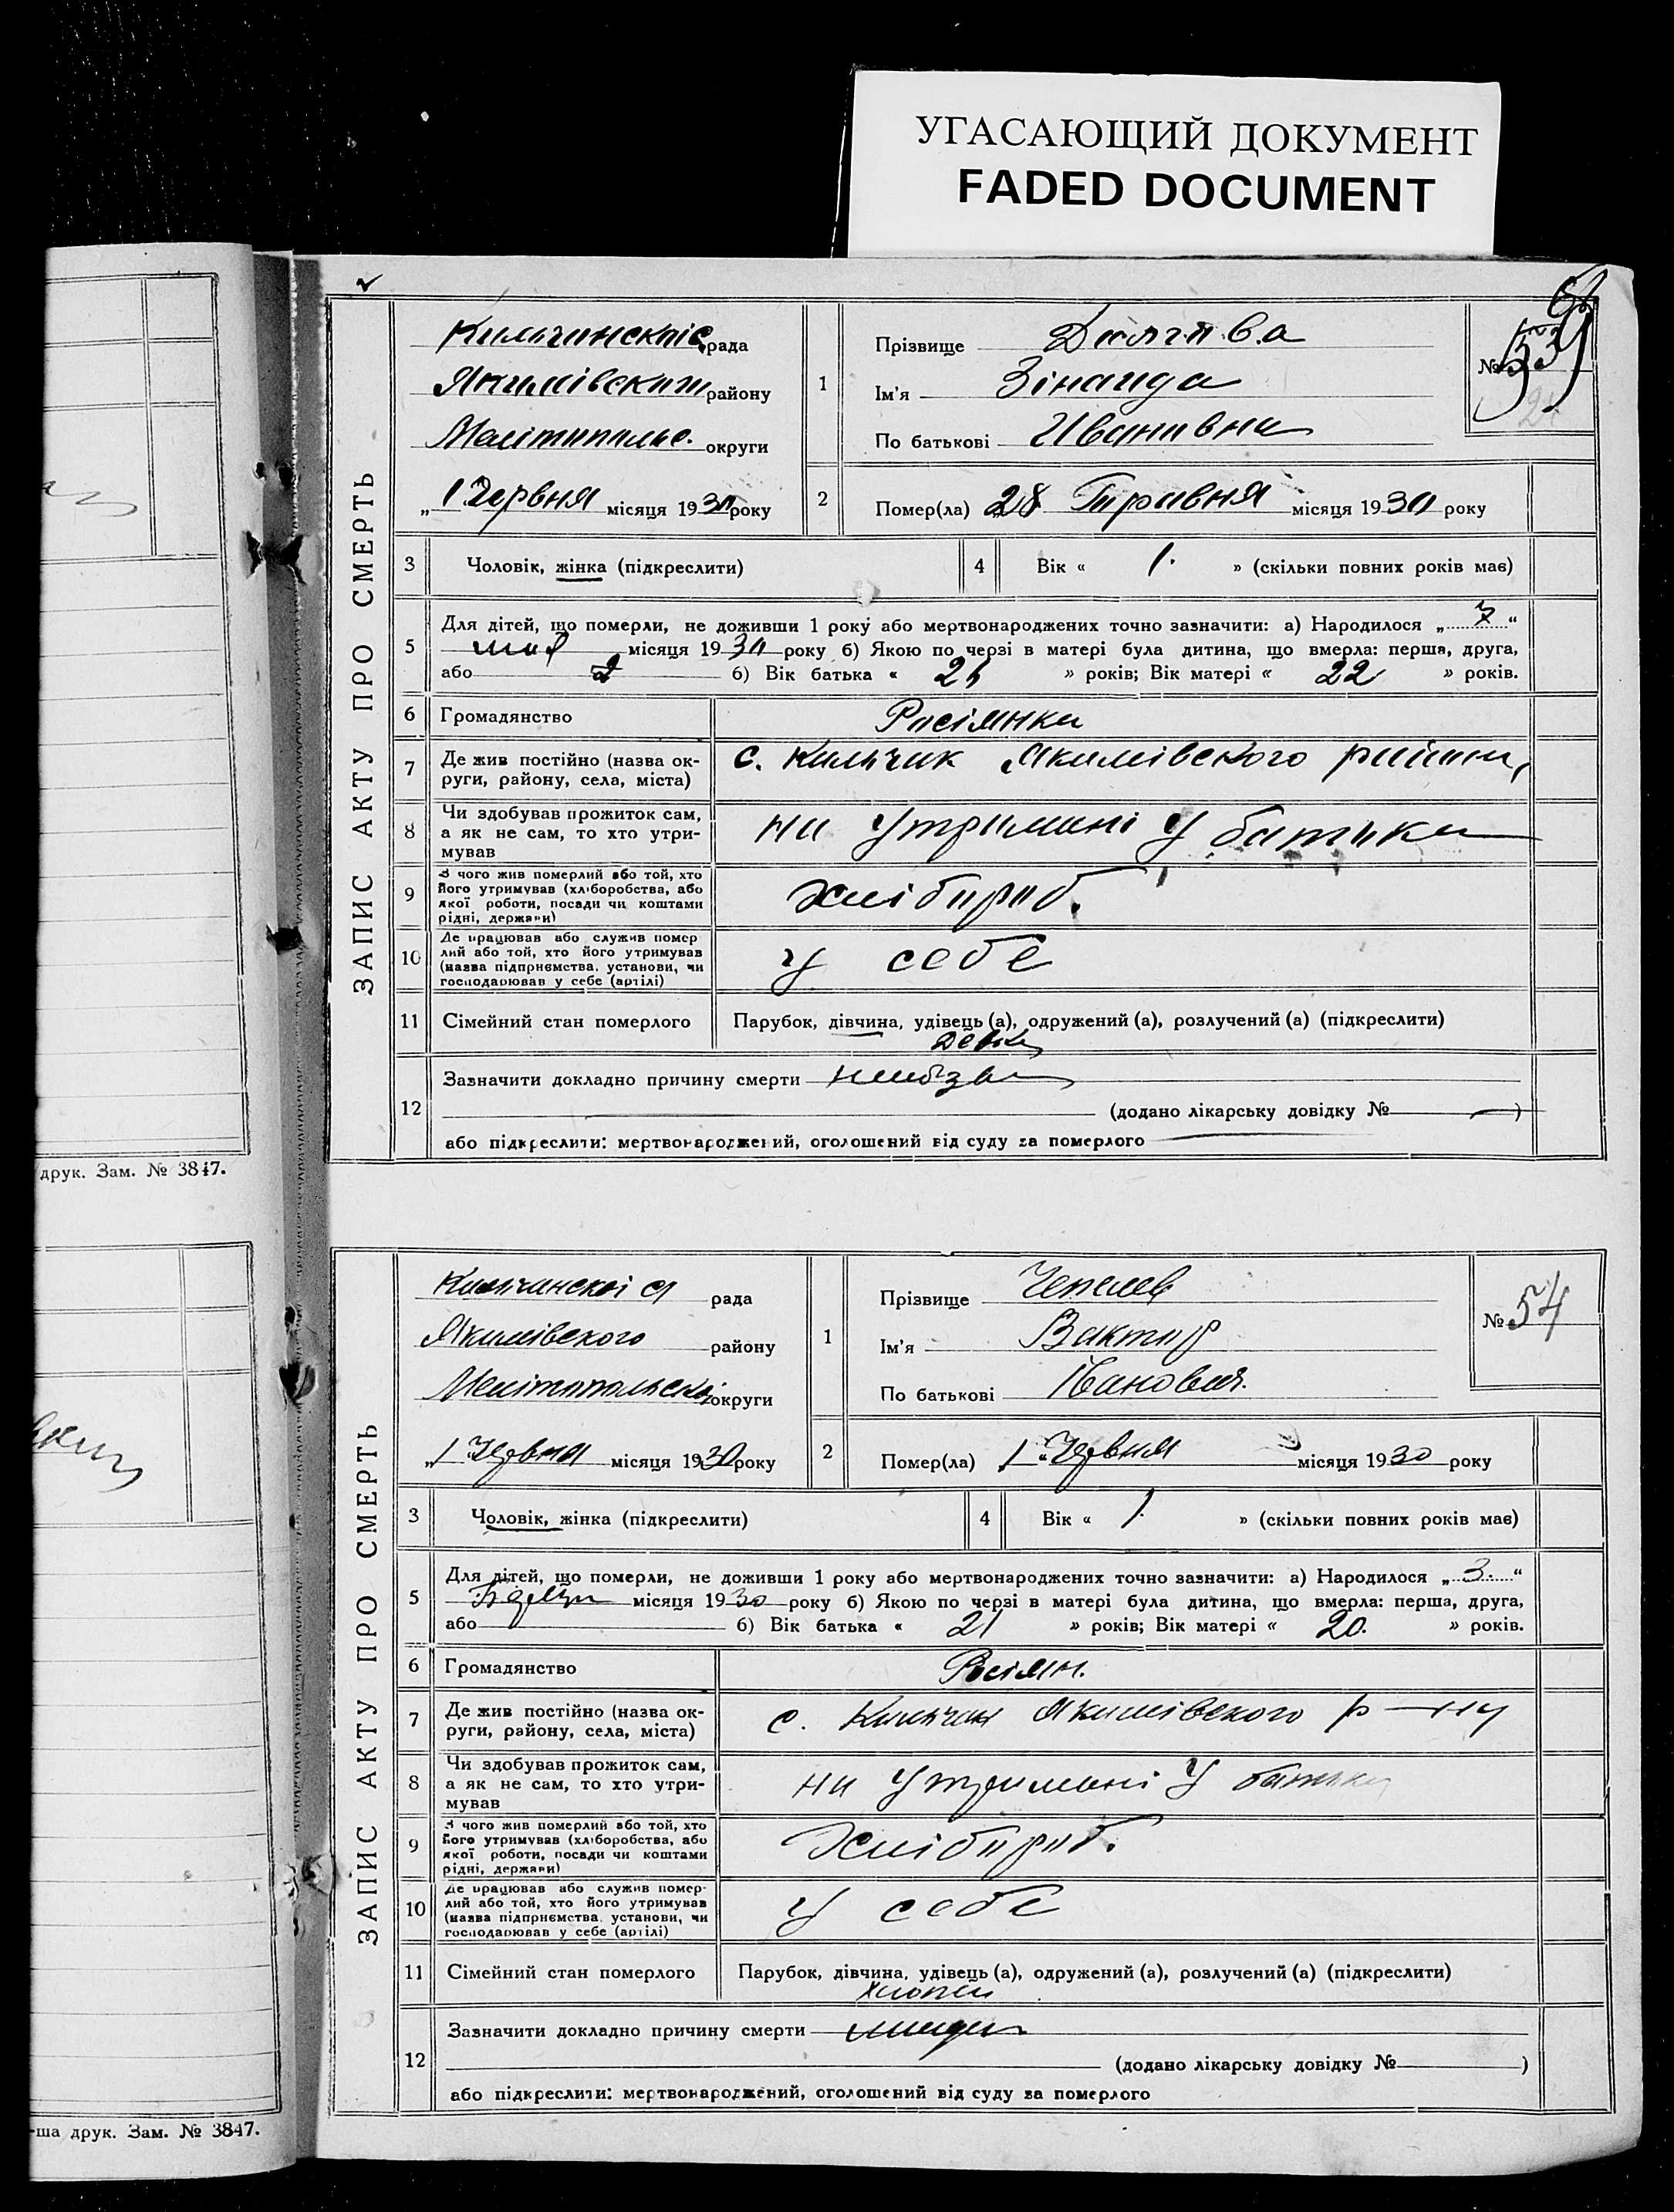 УГАСАЮЩИЙ ДОКУМЕНТ
FADED DOCUMENT
друк. Зам. № 3847.
ЗАПИС АКТУ ПРО СМЕРТЬ
рада
Якимівским району
Мелітопольс. округи
„1 Червня місяця 1930 року
1
Прізвище Долгова
Ім'я Зінаида
По батькові Иванивна
№ 53
2
Помер(ла) 28 Травня місяця 1930 року
3 Чоловік, жінка (підкреслити)
4 Вік « 1. » (скільки повних років має)
5
Для дітей, що померли, не доживши 1 року або мертвонароджених точно зазначити: а) Народилося „ “
мая місяця 1930 року б) Якою по черзі в матері була дитина, що вмерла: перша, друга,
або 2 б) Вік батька « » років; Вік матері « 22 » років.
6 Громадянство Росіянка
7
Де жив постійно (назва ок-
руги, району, села, міста)
с. Якимівського району
8
Чи здобував прожиток сам,
а як не сам, то хто утри-
мував
на утримані у батька
9
З чого жив померлий або той, хто
його утримував (хліборобства, або
якої роботи, посади чи коштами
рідні, держави)
хлібороб.
10
Де працював або служив помер
лий або той, хто його утримував
(назва підприємства, установи, чи
господарював у себе (артілі)
у себе
11 Сімейний стан померлого
Парубок, дівчина, удівець (а), одружений (а), розлучений (а) (підкреслити)
12
Зазначити докладно причину смерти
(додано лікарську довідку № )
або підкреслити: мертвонароджений, оголошений від суду за померлого
-ша друк. Зам. № 3847.
ЗАПИС АКТУ ПРО СМЕРТЬ
рада
Якимівского району
Мелітопольскої округи
„1 Червня місяця 1930 року
1
Прізвище
Ім'я Виктор
По батькові Іванович.
№ 54
2
Помер(ла) 1 „Червня місяця 1930 року
3 Чоловік, жінка (підкреслити)
4 Вік « 1. » (скільки повних років має)
5
Для дітей, що померли, не доживши 1 року або мертвонароджених точно зазначити: а) Народилося „3.“
місяця 1930 року б) Якою по черзі в матері була дитина, що вмерла: перша, друга,
або б) Вік батька « 21 » років; Вік матері « 20. » років.
6 Громадянство Росіян.
7
Де жив постійно (назва ок-
руги, району, села, міста)
с. Якимівського р—ну
8
Чи здобував прожиток сам,
а як не сам, то хто утри-
мував
на утримані у батька
9
З чого жив померлий або той, хто
його утримував (хліборобства, або
якої роботи, посади чи коштами
рідні, держави)
Хлібороб.
10
Де працював або служив помер-
лий або той, хто його утримував
(назва підприємства, установи, чи
господарював у себе (артілі)
у себе
11 Сімейний стан померлого
Парубок, дівчина, удівець (а), одружений (а), розлучений (а) (підкреслити)
12
Зазначити докладно причину смерти
(додано лікарську довідку № )
або підкреслити: мертвонароджений, оголошений від суду за померлого